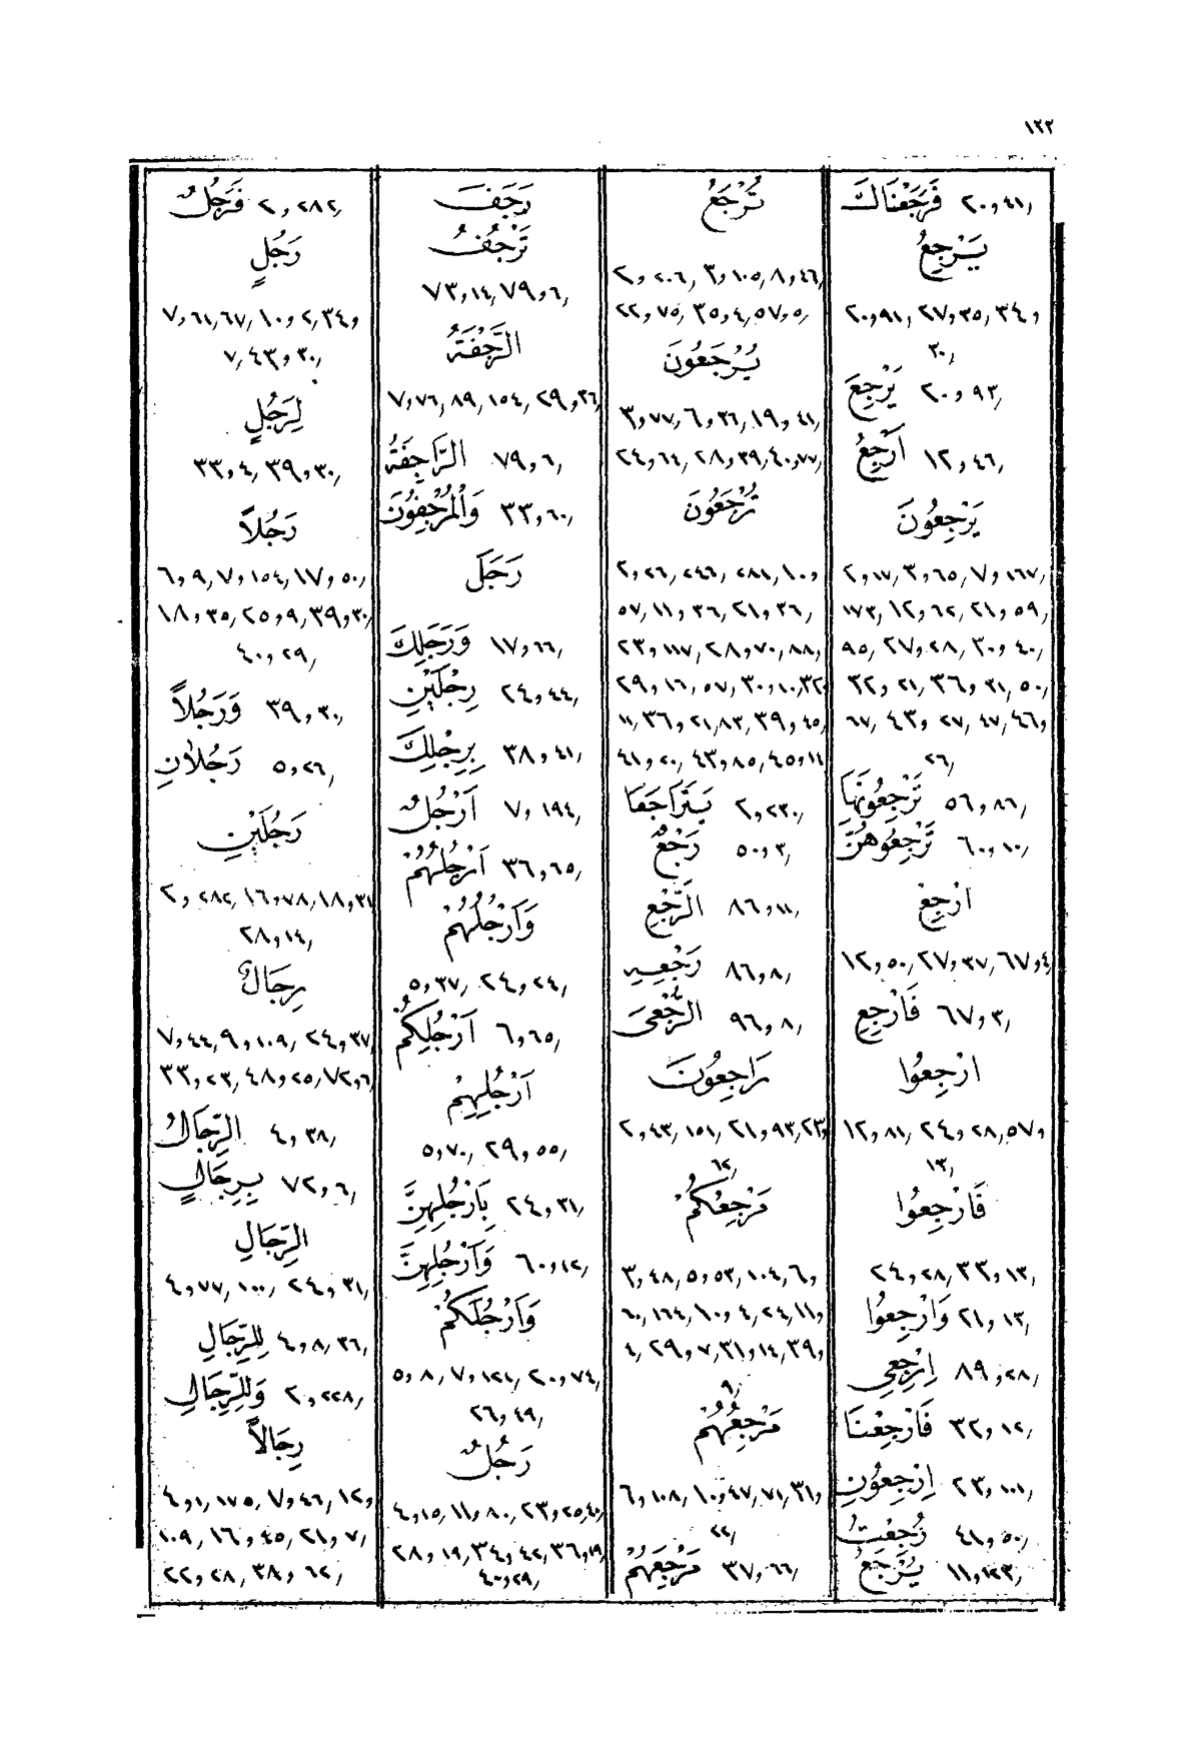 ١٢٢
٢٠,٤١, فَرَجَعْنَاكَ
يَرْجِعُ
٢٠,٩١, ٢٧,٣٥, ٣٤,
٣٠,
٢٠,٩٣, يَرْجِعَ
١٢,٤٦, أَرْجِعُ
يَرْجِعُونَ
٢,١٧, ٣,٦٥, ٧,١٦٧,
١٧٣, ١٢,٦٢, ٢١,٥٩,
٩٥, ٢٧,٢٨, ٣٠,٤٠,
٣٢,٢١, ٣٦,٣١, ٥٠,
٦٧, ٤٣,٢٧, ٤٧, ٤٦,
٢٦,
٥٦,٨٦, تَرْجِعُونَهَا
٦٠,١٠, تَرْجِعُوهُنَّ
ارْجِعْ
١٢,٥٠, ٢٧,٣٧, ٦٧,٤
٦٧,٣, فَارْجِعِ
ارْجِعُوا
١٢,٨١, ٢٤,٢٨, ٥٧,
١٣,
فَارْجِعُوا
٢٤,٢٨, ٣٣,١٣,
٢١,١٣, وَارْجِعُوا
٨٩,٢٨, ارْجِعِي
٣٢,١٢, فَارْجِعْنَا
٢٣,١٠١, ارْجِعُونِ
٤١,٥٠, رُجِعْتُ
١١,١٢٣, يُرْجَعُ
تُرْجَعُ
٢,٢٠٦, ٣,١٠٥, ٨,٤٦,
٢٢,٧٥, ٣٥,٤, ٥٧,٥,
يُرْجَعُونَ
٣,٧٧, ٦,٣٦, ١٩,٤١,
٢٤,٦٤, ٢٨,٣٩, ٤٠,٧٧,
تُرْجَعُونَ
٢,٢٦, ٢٤٦, ٢٨١, ١٠,
٥٧, ١١,٣٦, ٢١,٣٦,
٢٣,١١٧, ٢٨,٧٠, ٨٨,
٢٩,١٦, ٥٧, ٣٠,١٠, ٣٢
١١, ٣٦,٢١, ٨٣, ٣٩,٤٥,
٤١,٢٠, ٤٣,٨٥, ٤٥,١٤
٢,٢٣٠, يَتَرَاجَعَا
٥٠,٣, رَجْعٌ
٨٦,١١, الرَّجْعِ
٨٦,٨, رَجْعِهِ
٩٦,٨, الرُّجْعَى
رَاجِعُونَ
٢,٤٣, ١٥١, ٢١,٩٣, ٢٣,
٦٢,
مَرْجِعُكُمْ
٣,٤٨, ٥,٥٣, ١٠٤, ٦,
٦٠, ١٦٤, ١٠,٤, ٢٤, ١١,
٤, ٢٩,٧, ٣١,١٤, ٣٩,
٩,
مَرْجِعُهُمْ
٦,١٠٨, ١٠,٤٧, ٧١, ٣١,
٢٢,
٣٧,٦٦, مَرْجِعَهُمْ
رَجَفَ
تَرْجُفُ
٧٣,١٤, ٧٩,٦,
الرَّجْفَةُ
٧,٧٦, ٨٩, ١٥٤, ٢٩,٣٦,
٧٩,٦, الرَّاجِفَةُ
٣٣,٦٠, وَالْمُرْجِفُونَ
رَجَلَ
١٧,٦٦, وَرَجَلِكَ
٢٤,٤٤, رِجْلَيْنِ
٣٨,٤١, بِرِجْلِكَ
٧,١٩٤, أَرْجُلٌ
٣٦,٦٥, أَرْجُلُهُمْ
وَأَرْجُلُهُمْ
٥,٣٧, ٢٤,٢٤,
٦,٦٥, أَرْجُلِكُمْ
أَرْجُلِهِمْ
٥,٧٠, ٢٩,٥٥,
٢٤,٣١, بِأَرْجُلِهِنَّ
٦٠,١٢, وَأَرْجُلِهِنَّ
وَأَرْجُلَكُمْ
٥,٨, ٧,١٢٤, ٢٠,٧٤,
٢٦,٤٩,
رَجُلٌ
٤,١٥, ١١,٨٠, ٢٣,٢٥, ٤٠,
٢٨,١٩, ٣٤,٤٢, ٣٦,١٩,
٤٠,٢٩,
٢,٢٨٢, فَرَجُلٌ
رَجُلٍ
٧,٦١, ٦٧, ١٠,٢, ٣٤,
٧, ٤٣,٣٠,
لِرَجُلٍ
٣٣,٤, ٣٩,٣٠,
رَجُلاً
٦,٩, ٧,١٥٤, ١٧,٥٠,
١٨,٣٥, ٢٥,٩, ٣٩,٣٠,
٤٠,٢٩,
٣٩,٣٠, وَرَجُلاً
٥,٢٦, رَجُلَانِ
رَجُلَيْنِ
٢,٢٨٢, ١٦,٧٨, ١٨,٣١
٢٨,١٤,
رِجَالٌ
٧,٤٤, ٩,١٠٩, ٢٤,٣٧,
٣٣,٢٣, ٤٨,٢٥, ٧٢,٦
٤,٣٨, الرِّجَالُ
٧٢,٦, بِرِجَالٍ
الرِّجَالِ
٤,٧٧, ١٠٠, ٢٤,٣١,
٤,٨, ٣٦, لِلرِّجَالِ
٢,٢٢٨, وَلِلرِّجَالِ
رِجَالاً
٤,١, ١٧٥, ٧,٤٦, ١٢,
١٠٩, ١٦,٤٥, ٢١,٧,
٢٢,٢٨, ٣٨,٦٢,